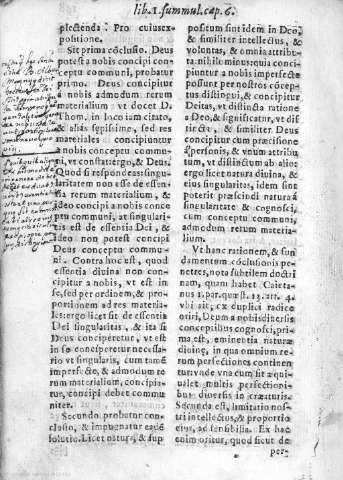 lib. 1. summul. cap. 6.
plectenda. Pro cuius ex-
positione.
Sit prima cōclusio. Deus
potest a nobis concipi con-
ceptu communi, probatur
primo. Deus concipitur
a nobis admodum rerum
materialium vt docet D.
Thom. in loco iam citato,
& alias sępissime, sed res
materiales concipiuntur
a nobis conceptu commu-
ni, vt constat: ergo, & Deus.
Quod si respondeas: singu-
laritatem non esse de essen-
tia rerum materialium, &
ideo concipi a nobis conce-
ptu communi, at singulari-
tas est de essentia Dei, &
ideo non potest concipi
Deus conceptu commu-
ni. Contra hoc est, quod
essentia diuina non con-
cipitur a nobis, vt est in
se, sed per ordinem, & pro-
portionem ad res materia-
les: ergo licet sit de essentia
Dei singularitas, & ita si
Deus conciperetur, vt est
in se conciperetur necessa-
rio vt singularis, cum tamē
imperfecte, & admodum re
rum materialium, concipia-
tur, concipi debet commu
niter.
Secundo probatur con-
clusio, & impugnatur eadē
solutio. Licet natura, & sup
positum sint idem in Deo,
& similiter intellectus, &
voluntas, & omnia attribu
ta: nihilominus quia conci-
piuntur a nobis imperfecte
possunt per nostros cōcep-
tus distingui, & concipitur
Deitas, vt distincta ratione
a Deo, & significatur, vt di
stincta, & similiter Deus
concipitur cum præcisione
a personis, & vnum attribu
tum, vt distinctum ab alio:
ergo licet natura diuina, &
eius singularitas, idem sint
poterit præscindi natura a
singularitate & cognosci,
cum conceptu communi,
admodum rerum materia-
lium.
Vt hanc rationem, & fun
damentum cōclusionis pe-
netres, nota subtilem doctri
nam, quam habet Caieta-
nus 1. par. quæst. 13. art. 4.
vbi ait, ex duplici radice
oriri, Deum a nobis diuersis
conceptibus cognosci, pri-
ma est, eminentia naturæ
diuinę, in qua omnium re-
rum perfectiones continen
tur: vnde vna cum sit æqui-
ualet multis perfectioni-
bus diuersis in creaturis.
Secunda est, limitatio nos-
tri intellectus, & proportio
eius, ad sensibilia. Ex hac
enim oritur, quod sicut de
per-